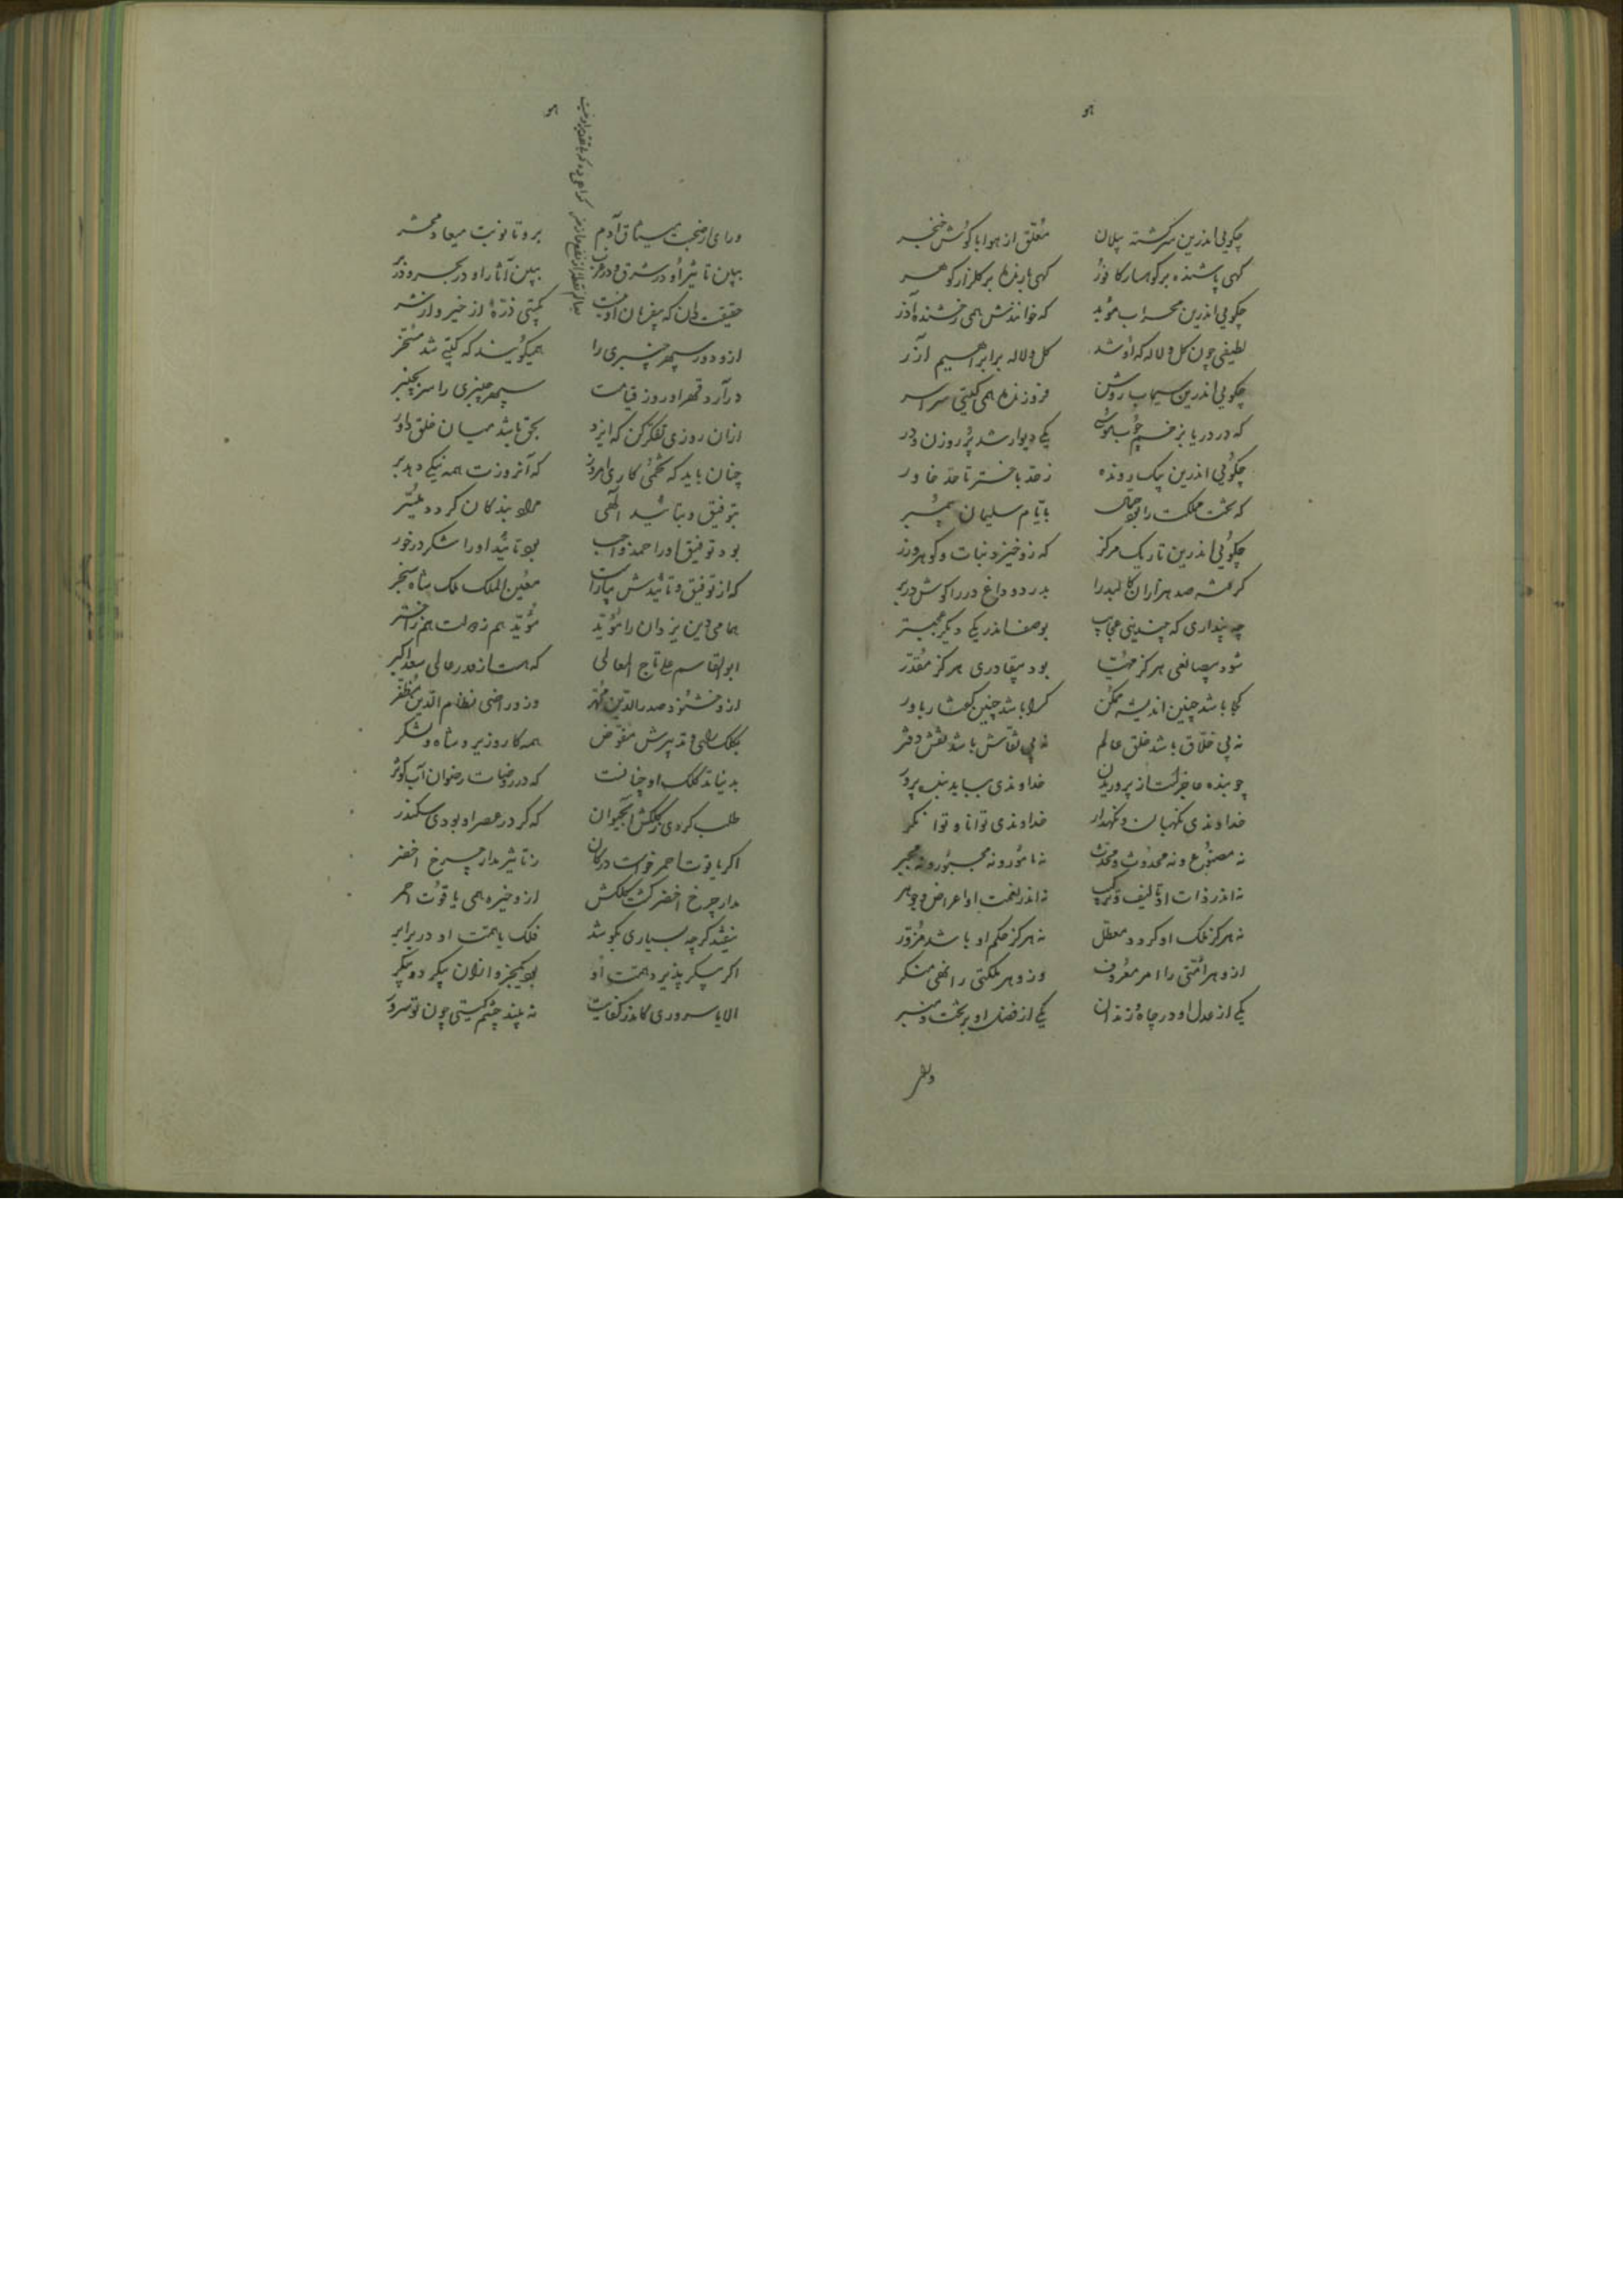 هو
چگویی اندرین سرگشته پیلان معلق از هوا با کوس خنجر
گهی پاشنده بر کوهسار کافور گهی بارنده بر گلزار گوهر
چگویی اندرین محراب موبد که خوانندش همی رخشنده آذر
لطیفی چون گل و لاله که او شد گل و لاله بر ابراهیم آزر
چگویی اندرین سیماب روشن فروزنده همی گیتی سراسر
که در دریا بزخم چوب موسی یکی دیوار شد پر روزن و در
چگویی اندرین پیک رونده ز حد باختر تا حد خاور
که تخت مملکت را بود حمال بایام سلیمان پیمبر
چگویی اندرین تاریک مرکز که زو خیزد نبات و گوهر و زر
گرفته صد هزاران کالبد را بدرد و داغ در آغوش و در بر
چه پنداری که چندینی عجایب بوصف اندر یکی دیگر عجبتر
شود بی صانعی هرگز مهیا بود بی قادری هرگز مقدر
کجا باشد چنین اندیشه ممکن کرا باشد چنین گفتار باور
نه بی خلاق باشد خلق عالم نه بی نقاش باشد نقش دفتر
چو بنده عاجز است از پروریدن خداوندی بباید بنده پرور
خداوندی نگهبان و نگهدار خداوندی توانا و توانگر
نه مصنوع و نه محدوث و محدث نه مامور و نه مجبور و نه مجبر
نه اندر ذات او تالیف و ترکیب نه اندر نعمت او اعراض و جوهر
نه هرگز ملک او گردد معطل نه هرگز حکم او باشد مزور
ازو هر امتی را امر معروف وزو هر ملکتی را نهی منکر
یکی از عدل او در چاه و زندان یکی از فضل او بر تخت و منبر
هو
ورای از صحبت میثاق آدم برو تا نوبت میعاد محشر
ببین تاثیر او در شرق و در غرب ببین آثار او در بحر و در بر
حقیقت دان که بیفرمان او نیست بگیتی ذره از خیر و از شر
ازو دور سپهر چنبری را همیگویند که گیتی شد مسخر
در آرد قهر او روز قیامت سپهر چنبری را سر بچنبر
ازان روزی تفکر کن که ایزد بحق باشد میان خلق داور
چنان باید که تخمی کاری امروز که آنروزت همه نیکی دهد بر
بتوفیق و بتائید الهی مراد بندگان گردد میسر
بود توفیق او را حمد واجب بود تائید او را شکر درخور
که از توفیق و تائیدش بیاراست معین الملک ملک شاه سنجر
همامی دین یزدان را موید موید هم ز دولت هم ز اختر
ابوالقاسم علی تاج المعالی که هست از قدر عالی سعد اکبر
ازو خشنود صدرالدین محمد وزو راضی نظام الدین مظفر
بکلک رای و تدبیرش مفوض همه کار وزیر و شاه و لشکر
بدنیا در کلک او چنانست که در روضات رضوان آب کوثر
طلب کردی ز کلکش آبحیوان که گر در عصر او بودی سکندر
اگر یاقوت احمر خواست در کان ز تاثیر مدار چرخ اخضر
مدار چرخ اخضر گشت کلکش ازو خیره همی یاقوت احمر
نیفتد گرچه بسیاری بکوشد فلک با همت او در برابر
اگر پیکر پذیرد همت او بود یکجزو ازان پیکر دو پیکر
الا یا سروری کاندر کفایت نه بیند چشم گیتی چون تو سرور